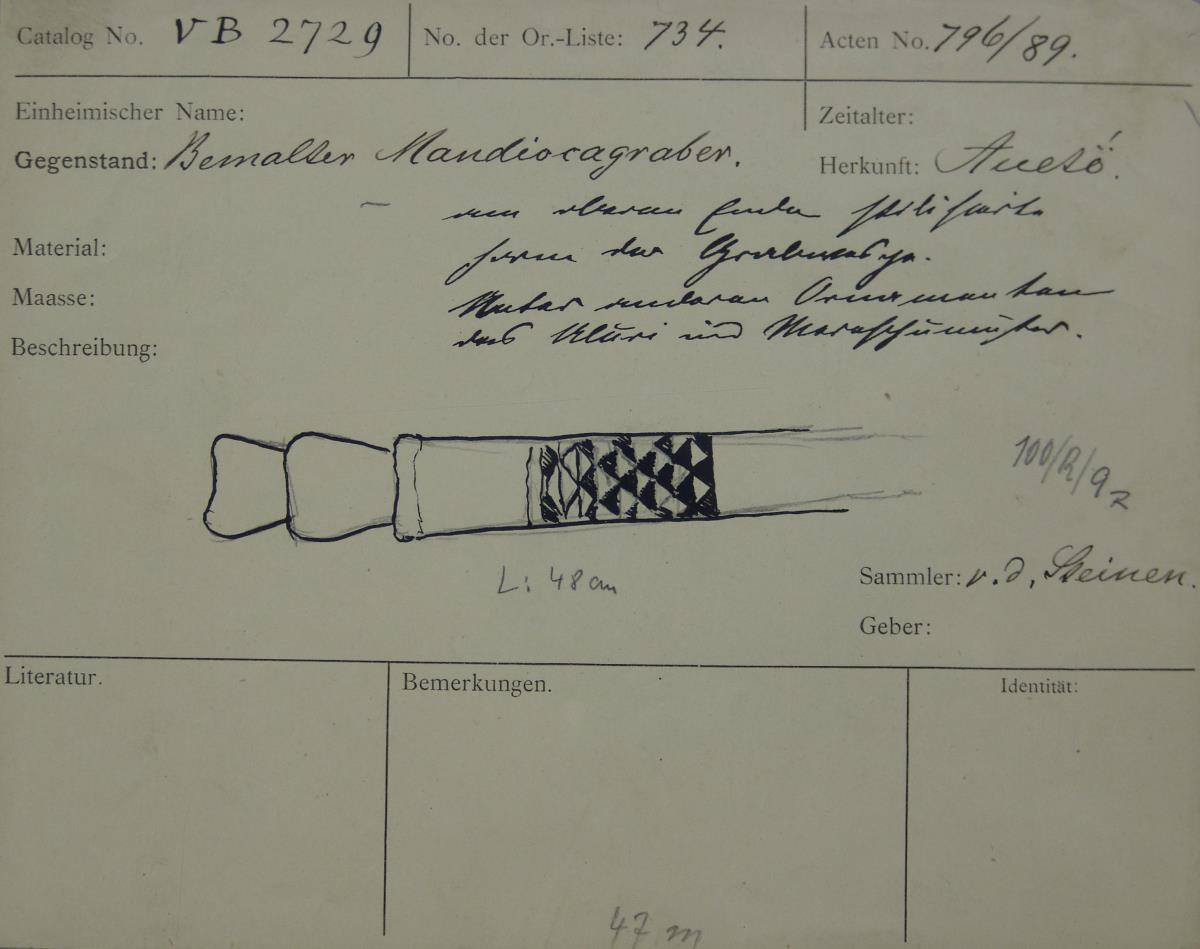 Catalog No. VB 2729 No. der Or.-Liste: 734. Acten No. 796/89.
Einheimischer Name:
Zeitalter:
Gegenstand: Bemalter Mandiocagraber.
Herkunft: Auetö́.
am oberen Ende stilisirte
Form der Grabwespe.
Unter anderen Ornamenten
das Uluri und Mereschumuster.
Material:
Maasse:
Beschreibung:
100/R/92
L: 48 cm
Sammler: v. d. Steinen.
Geber:
Literatur.
Bemerkungen.
Identität:
47 m